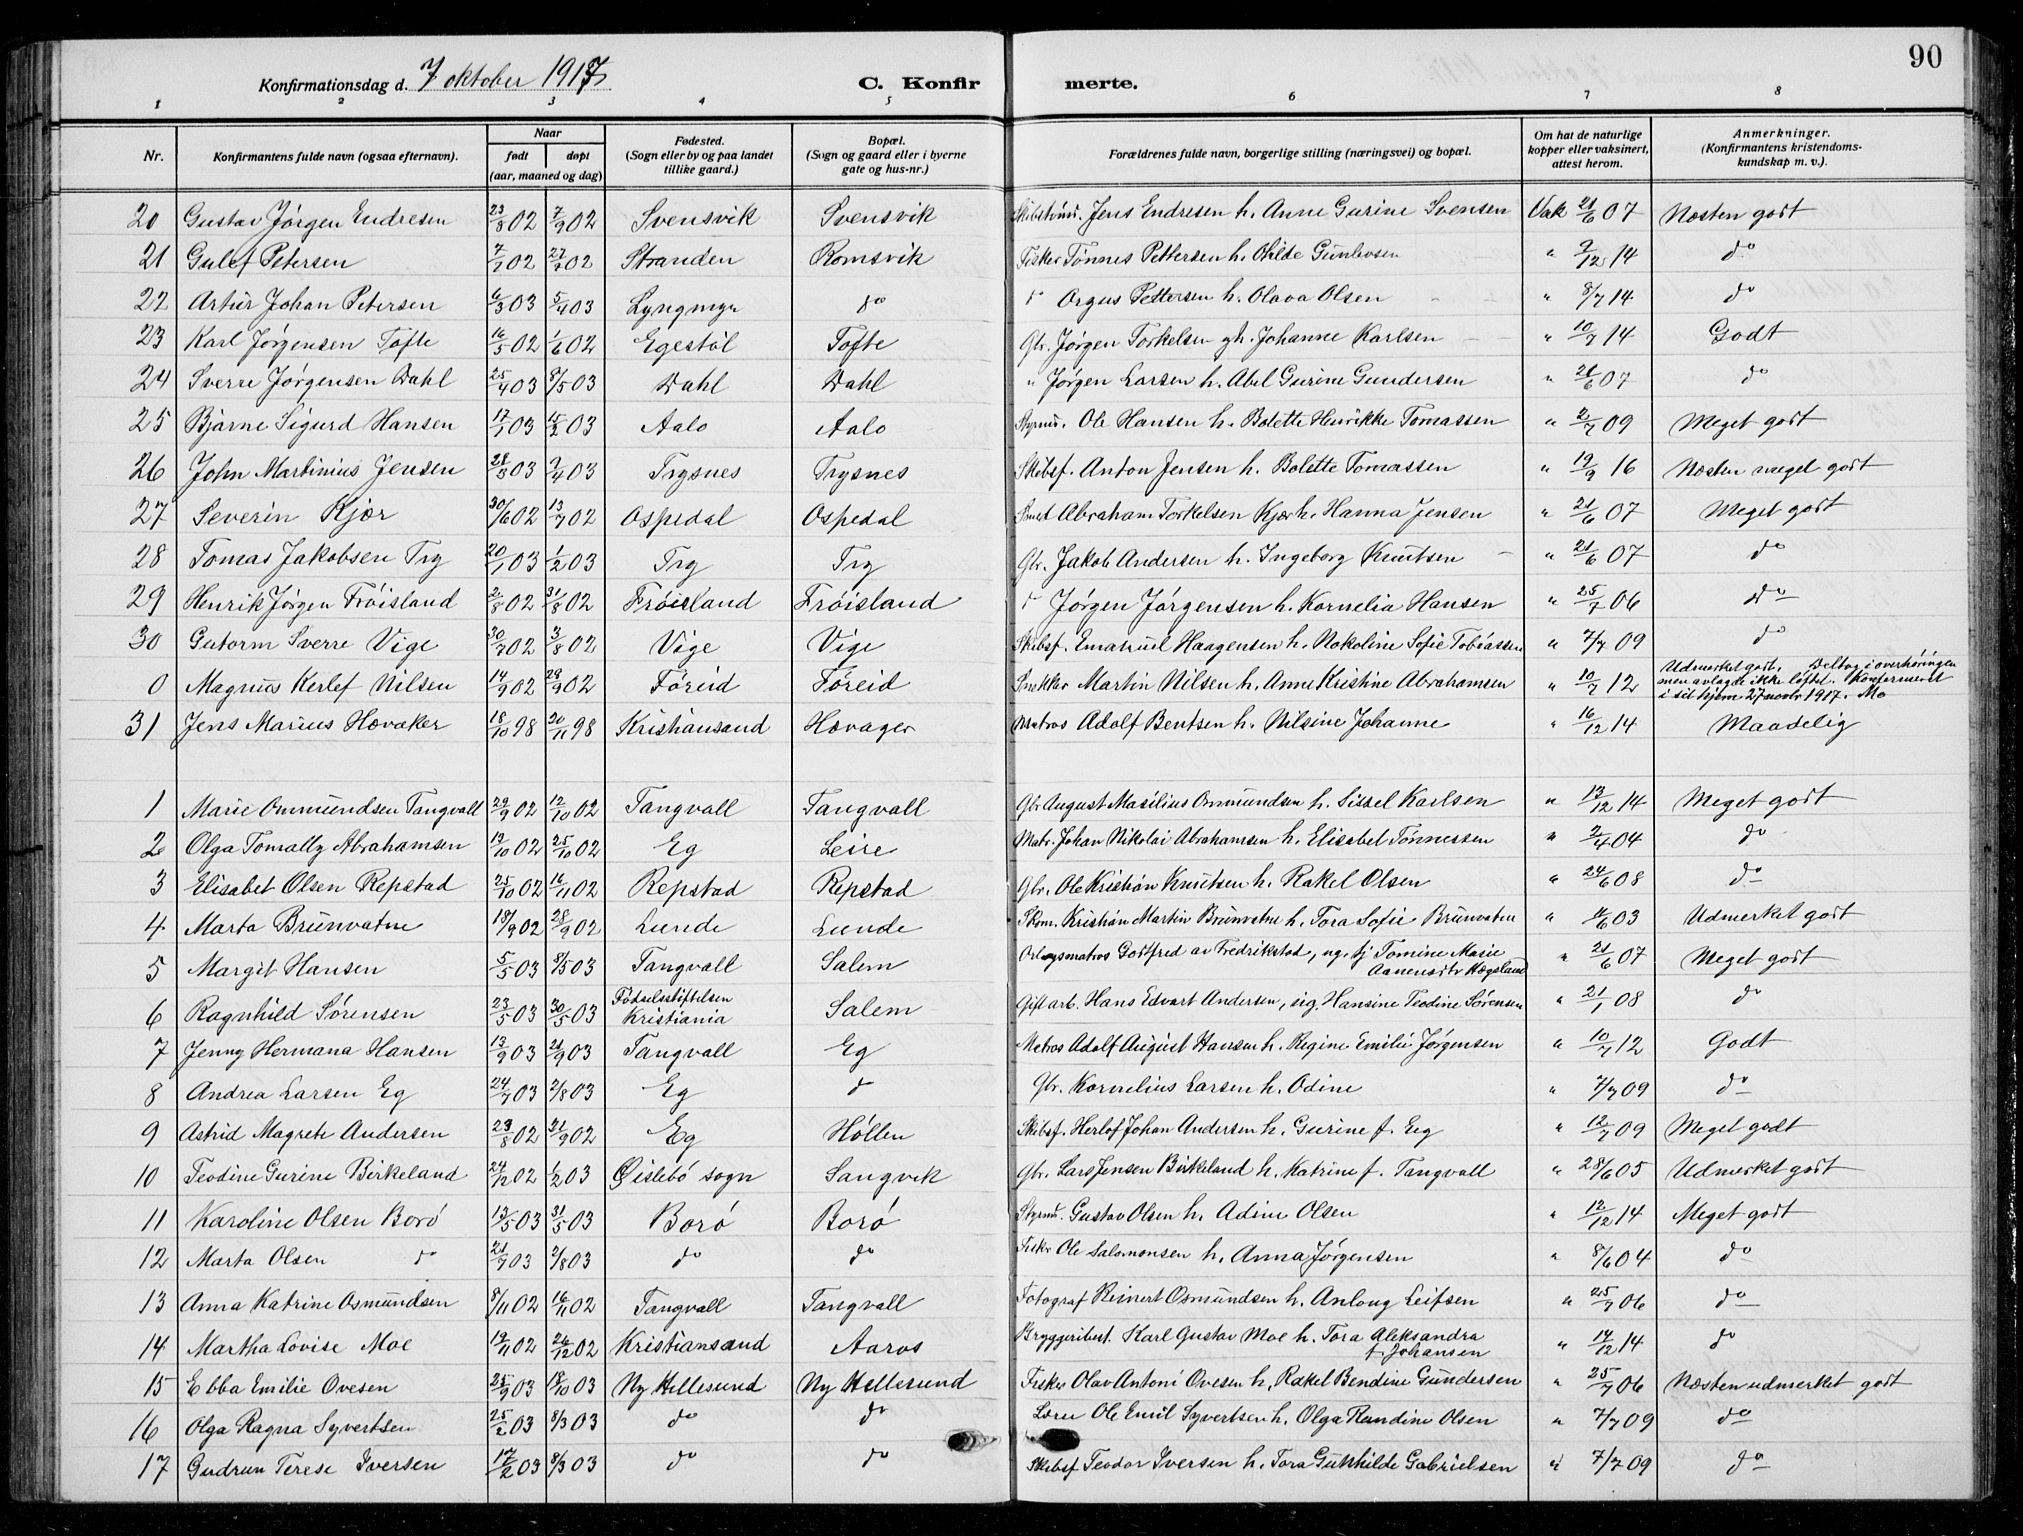 90
Konfirmationsdag d. 7 oktober 1917
C. Konfirmerte.
1 2 3 4 5 6 7 8
Nr. Konfirmantens fulde navn (ogsaa efternavn). Naar født døpt (aar, maaned og dag) Fødested. (Sogn eller by og paa landet tillike gaard.) Bopæl. (Sogn og gaard eller i byerne gate og hus-nr.) Forældrenes fulde navn, borgerlige stilling (næringsvei) og bopæl. Om hat de naturlige kopper eller vaksinert, attest herom. Anmerkninger. (Konfirmantens kristendoms-kundskap m. v.).
20 Gustav Jørgen Endresen 23/8 02 7/9 02 Svensvik Svensvik Jens Endresen h. Anne Gurine Svensen Vak 21/6 07 Næsten godt
21 Gulef Petersen 02 02 Stranden Romsvik Fisker Tønnes Pettersen h. Gunlevsen " 9/12 14 do
22 Artur Johan Petersen 6/3 03 5/4 03 Lyngmyr do d Orgus Pettersen h. Olava Olsen " 8/7 14 do
23 Karl Jørgensen Tofte 16/5 02 1/6 02 Egestøl Tofte Gbr. Jørgen Torkelsen gh. Johanne Karlsen " 10/7 14 Godt
24 Sverre Jørgensen Dahl 25/4 03 8/5 03 Dahl Dahl " Jørgen Larsen h. Abel Gurine Gundersen " 21/6 07 do
25 Bjarne Sigurd Hansen 17/1 03 15/2 03 Aalo Aalo Styrm. Ole Hansen h. Bolette Henrikke Tomassen " 2/7 09 Meget godt
26 John Martinius Jensen 28/3 03 03 Trysnes Trysnes Skibsf. Anton Jensen h. Bolette Tomassen " 19/9 16 Næsten meget godt
27 Severin Kjær 30/6 02 13/7 02 Ospedal Ospedal Smed Abraham Torkelsen Kjær h. Hanna Jensen " 21/6 07 Meget godt
28 Tomas Jakobsen Try 20/1 03 1/2 03 Try Try Gbr. Jakob Andersen h. Ingeborg Knutsen " 21/6 07 do
29 Henrik Jørgen Frøisland 2/8 02 31/8 02 Frøisland Frøisland d Jørgen Jørgensen h. Kornelia Hansen " 25/7 06 do
30 Gutorm Sverre Vige 30/7 02 3/8 02 Vige Vige Skibsf. Emanuel Haagensen h. Nokoline Sofie Tobiassen " 7/7 09 do
0 Magnus Kerlef Nilsen 14/9 02 28/9 02 Føreid Føreid Snekker Martin Nilsen h. Anne Kristine Abrahamsen " 10/7 12 Udmerket godt. Deltog i overhøringen
men avlagde ikke løftet. Konfirmeret
i sit hjem 27 novbr 1917. Mo
31 Jens Marius Hævaker 18/10 98 20/11 98 Kristiansand Hævager Matros Adolf Bentsen h. Nilsine Johanne " 16/12 14 Maadelig
1 Marie Ommundsen Tangvall 29/9 02 12/10 02 Tangvall Tangvall Gbr August Masilius Osmundsen h. Sissel Karlsen " 13/12 14 Meget godt
2 Olga Tomally Abrahamsen 13/10 02 25/10 02 Eg Leire Matr. Johan Nikolai Abrahamsen h. Elisabet Tønnessen " 2/4 04 do
3 Elisabet Olsen Repstad 25/10 02 16/11 02 Repstad Repstad Gbr. Ole Kristian Knutsen h. Rakel Olsen " 24/6 08 do
4 Marta Brunvatne 18/9 02 28/9 02 Lunde Lunde Skom. Kristian Martin Brunvatne h. Tora Sofie Brunvaten " 03 Udmerket godt
5 Margit Hansen 5/5 03 8/5 03 Tangvall Salem Orlogsmatros Godtfred av Fredrikstad, ug. tj Tomine Marie
Aanensdtr Hægeland " 21/6 07 Meget godt
6 Ragnhild Sørensen 23/5 03 30/5 03 Fødselsstiftelsen
Kristiania Salem Gift arb. Hans Edvart Andersen, sig. Hansine Teodine Sørensen " 21/1 08 do
7 Jenny Hermana Hansen 13/9 03 21/9 03 Tangvall Eg Matros Adolf August Hansen h. Regine Emilie Jørgensen " 10/7 12 Godt
8 Andrea Larsen Eg 24/7 03 2/8 03 Eg d Gbr. Kornelius Larsen h. Odine " 7/7 09 do
9 Astrid Magrete Andersen 23/8 02 21/9 02 Eg Høllen Skibsf. Herlof Johan Andersen h. Gurine f. Eeg " 12/7 09 Meget godt
10 Teodine Gurine Birkeland 24/12 02 1/2 03 Øislebø sogn Langvik Gbr. Lars Jensen Birkeland h. Katrine f. Tangvall " 28/6 05 Udmerket godt
11 Karoline Olsen Borø 13/5 03 31/5 03 Borø Borø Styrm. Gustav Olsen h. Adine Olsen " 12/12 14 Meget godt
12 Marta Olsen do 21/7 03 2/8 03 do do Fisker Ole Salomonsen h. Anna Jørgensen " 8/6 04 do
13 Anna Katrine Osmundsen 8/11 02 16/11 02 Tangvall Tangvall Fotograf Reinert Osmundsen h. Anlaug Leifsen " 25/7 06 do
14 Martha Lovise Moe 19/11 02 26/12 02 Kristiansand Aaros Bryggeribest. Karl Gustav Moe h. Tora Aleksandra
f. Johansen " 14/12 14 do
15 Ebba Emilie Ovesen 25/9 03 18/10 03 Ny Hellesund Ny Hellesund Fisker Olav Antoni Ovesen h. Rakel Bendine Gundersen " 25/7 06 Næsten udmerket godt
16 Olga Ragna Syvertsen 25/2 03 8/3 03 do do Ole Emil Syvertsen h. Olga Randine Olsen " 7/7 09 do
17 Gudrun Terese Iversen 17/2 03 8/3 03 do do Skibsf Teodor Iversen h. Tora Gunhilde Gabrielsen " 7/7 09 do